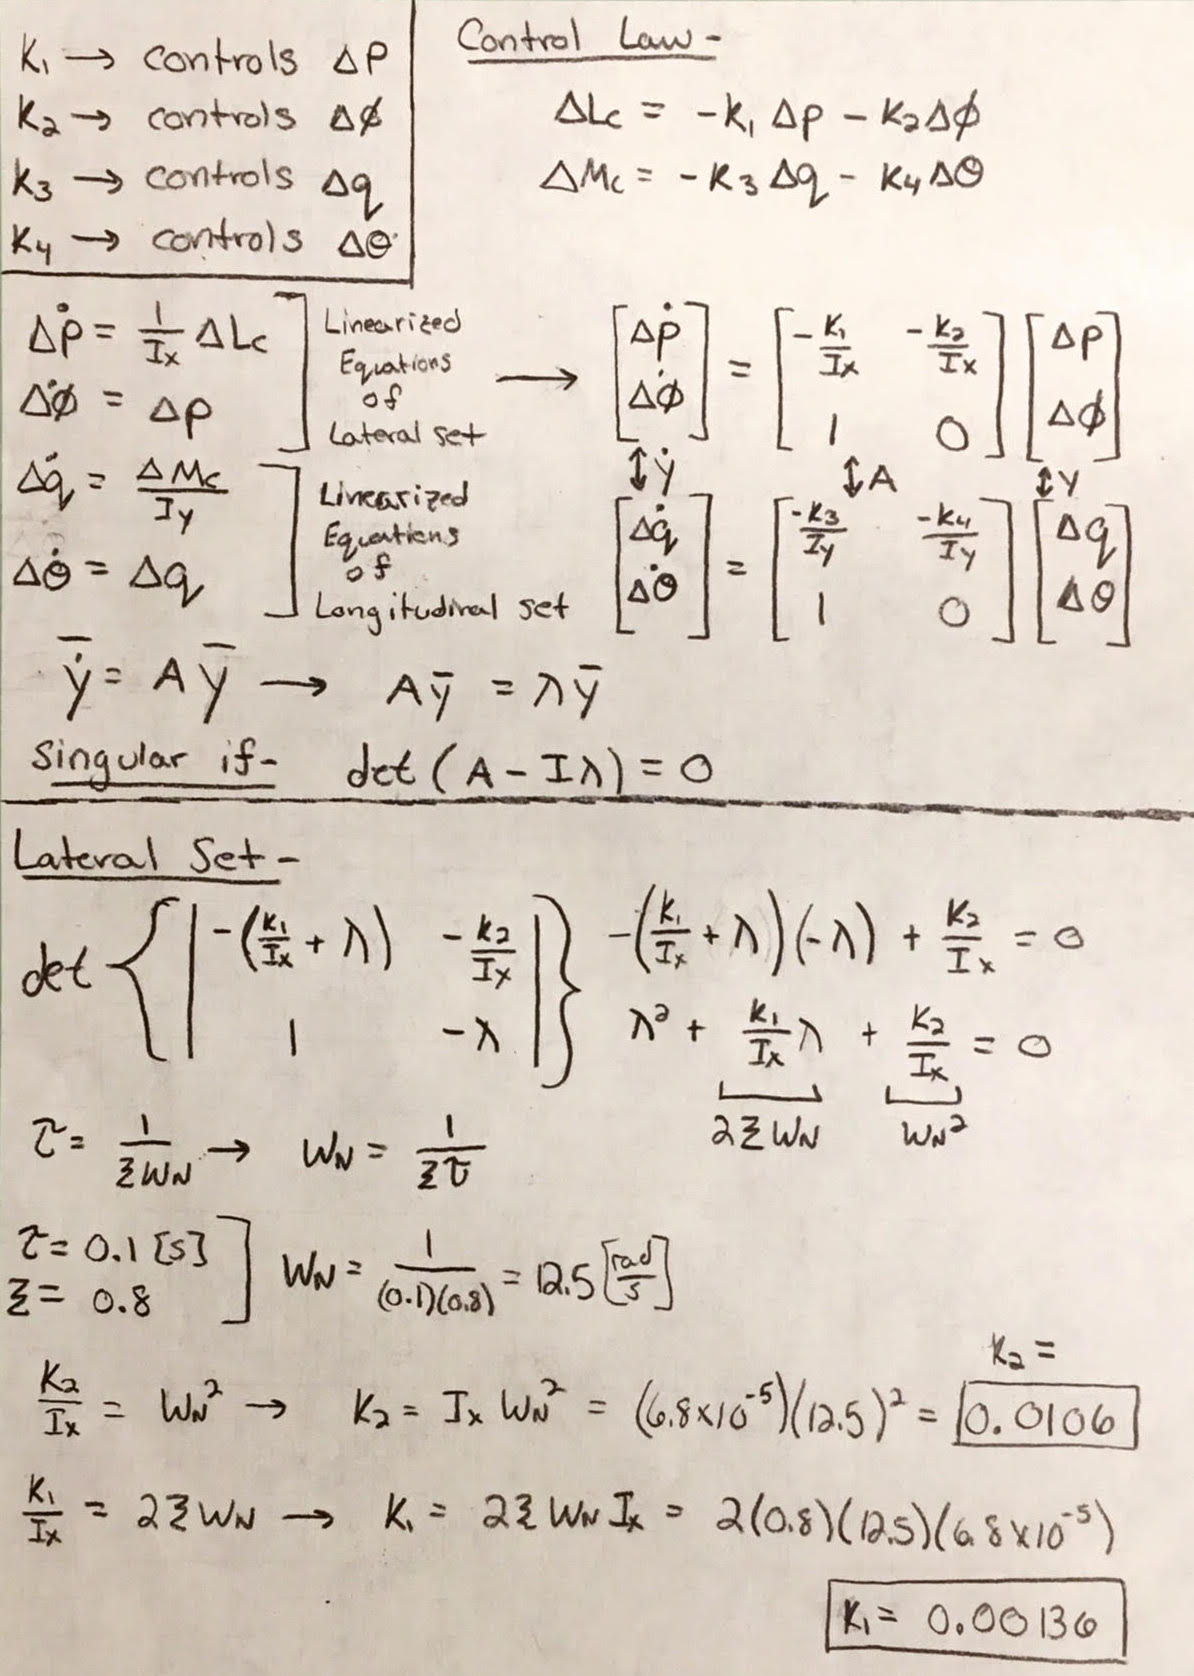 K₁ → controls Δp
K₂ → controls Δϕ
K₃ → controls Δq
K₄ → controls Δθ
Control Law -
ΔLc = -K₁ Δp - K₂Δϕ
ΔMc = -K₃ Δq - K₄Δθ
Δṗ = 1/Ix ΔLc
Δϕ̇ = Δp
] Linearized
Equations
of
Lateral set
→ [Δṗ Δϕ̇] = [-K₁/Ix -K₂/Ix 1 0] [Δp Δϕ]
↕ẏ ↕A ↕y
Δq̇ = ΔMc/Iy
Δθ̇ = Δq
] Linearized
Equations
of
Longitudinal set
[Δq̇ Δθ̇] = [-K₃/Iy -K₄/Iy 1 0] [Δq Δθ]
ẏ̄ = Aȳ → Aȳ = λȳ
Singular if- det(A - Iλ) = 0
Lateral Set -
det {| -(K₁/Ix + λ) -K₂/Ix 1 -λ |}
-(K₁/Ix + λ)(-λ) + K₂/Ix = 0
λ² + K₁/Ix λ + K₂/Ix = 0
2ξWN WN²
τ = 1/ξWN → WN = 1/ξτ
τ = 0.1 [s]
ξ = 0.8
] WN = 1/(0.1)(0.8) = 12.5 [rad/s]
K₂ =
K₂/Ix = WN² → K₂ = Ix WN² = (6.8x10⁻⁵)(12.5)² = 0.0106
K₁/Ix = 2ξWN → K₁ = 2ξWN Ix = 2(0.8)(12.5)(6.8x10⁻⁵)
K₁ = 0.00136